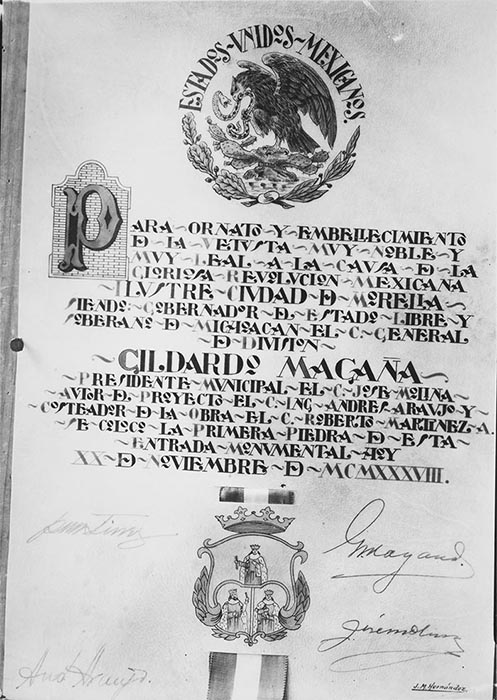 ESTADOS-VNIDOS-MEXICANOS.
PARA-ORNATO-Y-EMBELLECIMIENTO
D-LA-VETUSTA-MVY-NOBLE-Y
MVY-LEAL-A-LA-CAVSA-D-LA
GLORIOSA-REVOLVCION-MEXICANA
ILVSTRE-CIVDAD-D-MORELIA
SIENDO-GOBERNADOR-D-ESTADO-LIBRE-Y
SOBERANO-D-MICHOACAN-EL-C-GENERAL
-D-DIVISION-
GILDARDO MAGAÑA
-PRESIDENTE-MVNICIPAL-EL-C-JOSE-MOLINA-
AVTOR-D-PROYECTO-EL-C-ING-ANDRES-ARAVJO-Y-
COSTEADOR-D-LA-OBRA-EL-C-ROBERTO-MARTINEZ-A.
-SE-COLOCO-LA-PRIMERA-PIEDRA-D-ESTA-
-ENTRADA-MONVMENTAL-HOY-
XX-D-NOVIEMBRE-D-MCMXXXVIII.
GMagaña.
J.M. Hernández.